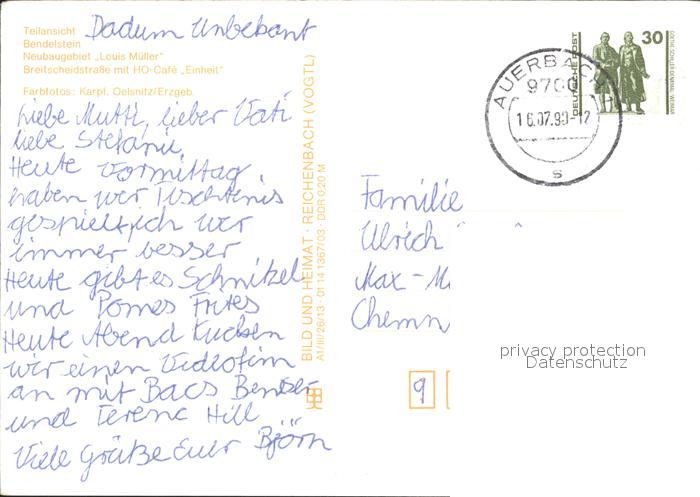 Teilansicht
Bendelstein
Neubaugebiet „Louis Müller"
Breitscheidstraße mit HO-Café „Einheit"
Farbfotos: Karpf, Oelsnitz/Erzgeb.
Dadum Unbekant
Liebe Mutti, lieber Vati
liebe Stefanie,
Heute Vormittag
haben wir Tischtenis
gespielt, ich war
immer besser
Heute gibt es Schnitzel
und Pomes Frites
Heute Abend kucken
wir einen Videofim
an mit Bacs Benser
und Terenc Hill
Viele Grüße Euer Björn
BILD UND HEIMAT · REICHENBACH (VOGTL)
A1/III/26/13 · 01 14 1367/03 · DDR 0,20 M
DEUTSCHE POST
30
GOETHE-SCHILLER-DENKMAL WEIMAR
AUERBACH
9700
16.07.90-12
s
Familie
Ulrich
Max-M
Chemn
9
privacy protection
Datenschutz